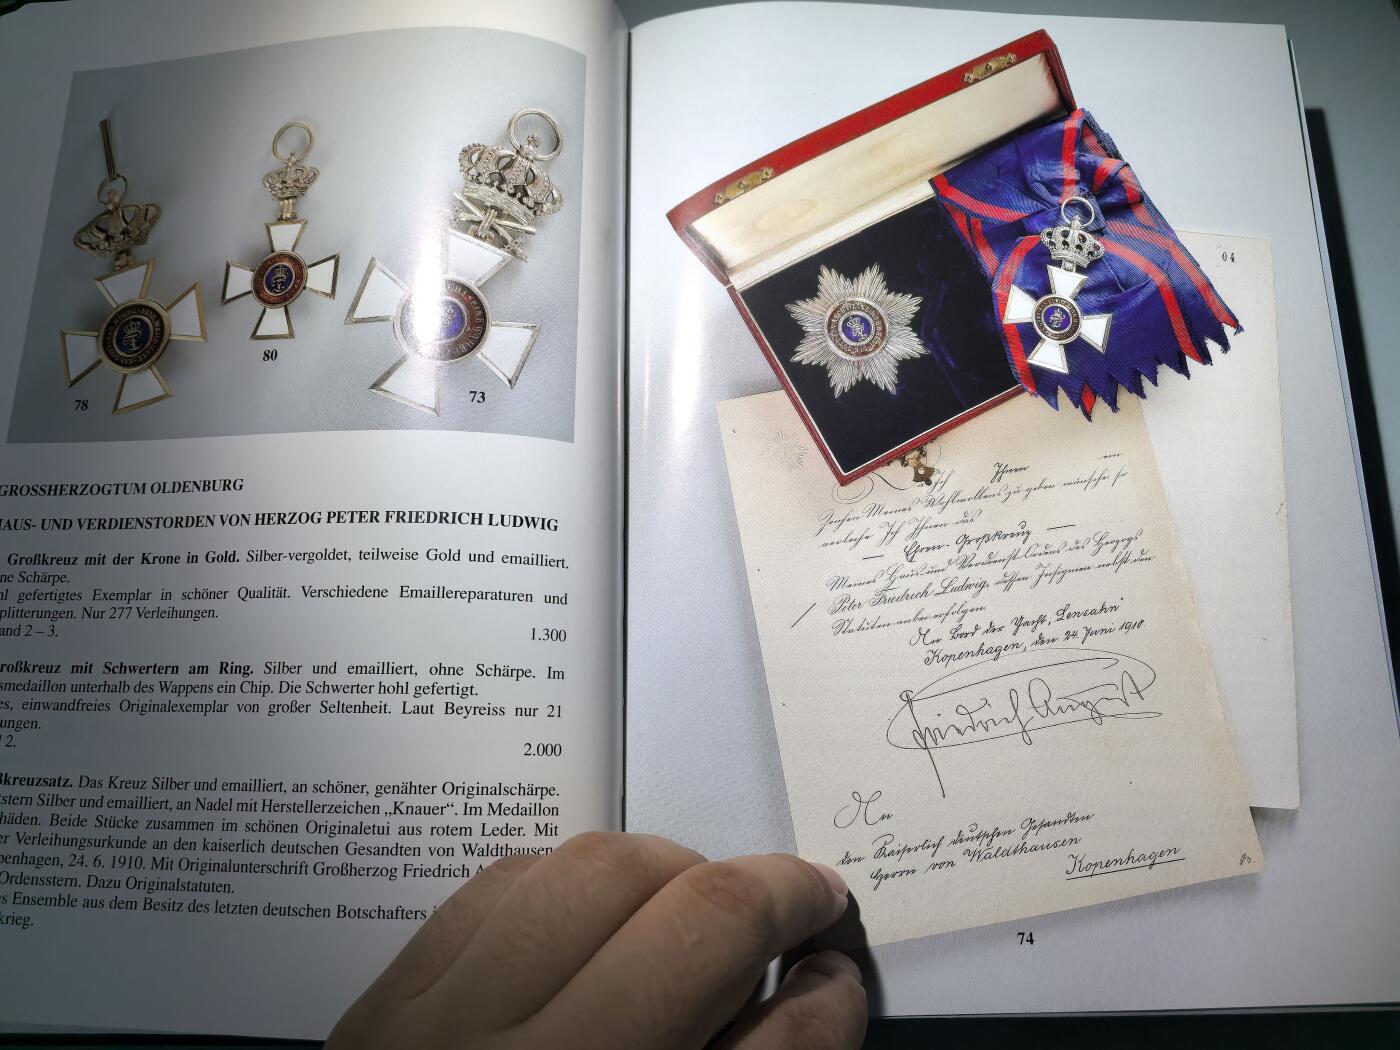 78
80
73
GROSSHERZOGTUM OLDENBURG
HAUS- UND VERDIENSTORDEN VON HERZOG PETER FRIEDRICH LUDWIG
Großkreuz mit der Krone in Gold. Silber-vergoldet, teilweise Gold und emailliert.
ne Schärpe.
hl gefertigtes Exemplar in schöner Qualität. Verschiedene Emaillereparaturen und
plitterungen. Nur 277 Verleihungen.
and 2 – 3.
1.300
roßkreuz mit Schwertern am Ring. Silber und emailliert, ohne Schärpe. Im
smedaillon unterhalb des Wappens ein Chip. Die Schwerter hohl gefertigt.
es, einwandfreies Originalexemplar von großer Seltenheit. Laut Beyreiss nur 21
ungen.
2.
2.000
ßkreuzsatz. Das Kreuz Silber und emailliert, an schöner, genähter Originalschärpe.
tstern Silber und emailliert, an Nadel mit Herstellerzeichen „Knauer“. Im Medaillon
häden. Beide Stücke zusammen im schönen Originaletui aus rotem Leder. Mit
er Verleihungsurkunde an den kaiserlich deutschen Gesandten von Waldthausen,
penhagen, 24. 6. 1910. Mit Originalunterschrift Großherzog Friedrich A
Ordensstern. Dazu Originalstatuten.
es Ensemble aus dem Besitz des letzten deutschen Botschafters
krieg.
04
Ich Ihnen ein
Zeichen Meines Wohlwollens zu geben wünsche, so
verleihe Ich Ihnen das
— Ehren-Großkreuz —
Meines Haus und Verdienst-Ordens des Herzogs
Peter Friedrich Ludwig, dessen Insignien nebst den
Statuten anbei erfolgen.
An Bord der Yacht „Lensahn“
Kopenhagen, den 24. Juni 1910.
Friedrich August
An
den Kaiserlich deutschen Gesandten
Herrn von Waldthausen
Kopenhagen
74